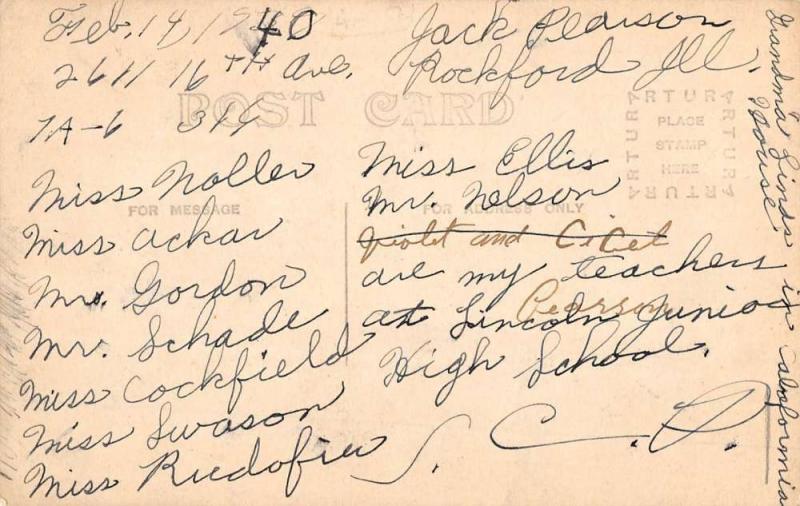 Feb. 14, 1940
2611 16TH Ave.
7A-6 311
Jack Pearson
Rockford Ill.
POST CARD
ARTURA
ARTURA
ARTURA
ARTURA
PLACE
STAMP
HERE
FOR MESSAGE
FOR ADDRESS ONLY
Miss Noller
Miss Ackar
Mr. Gordon
Mr. Schade
Miss Cockfield
Miss Swason
Miss
Miss Ellis
Mr. Nelson
Violet and
Pearson
are my teachers
at Lincoln Junior
High School.
S. C. P.
Grandma Linds, in Calafornia
House